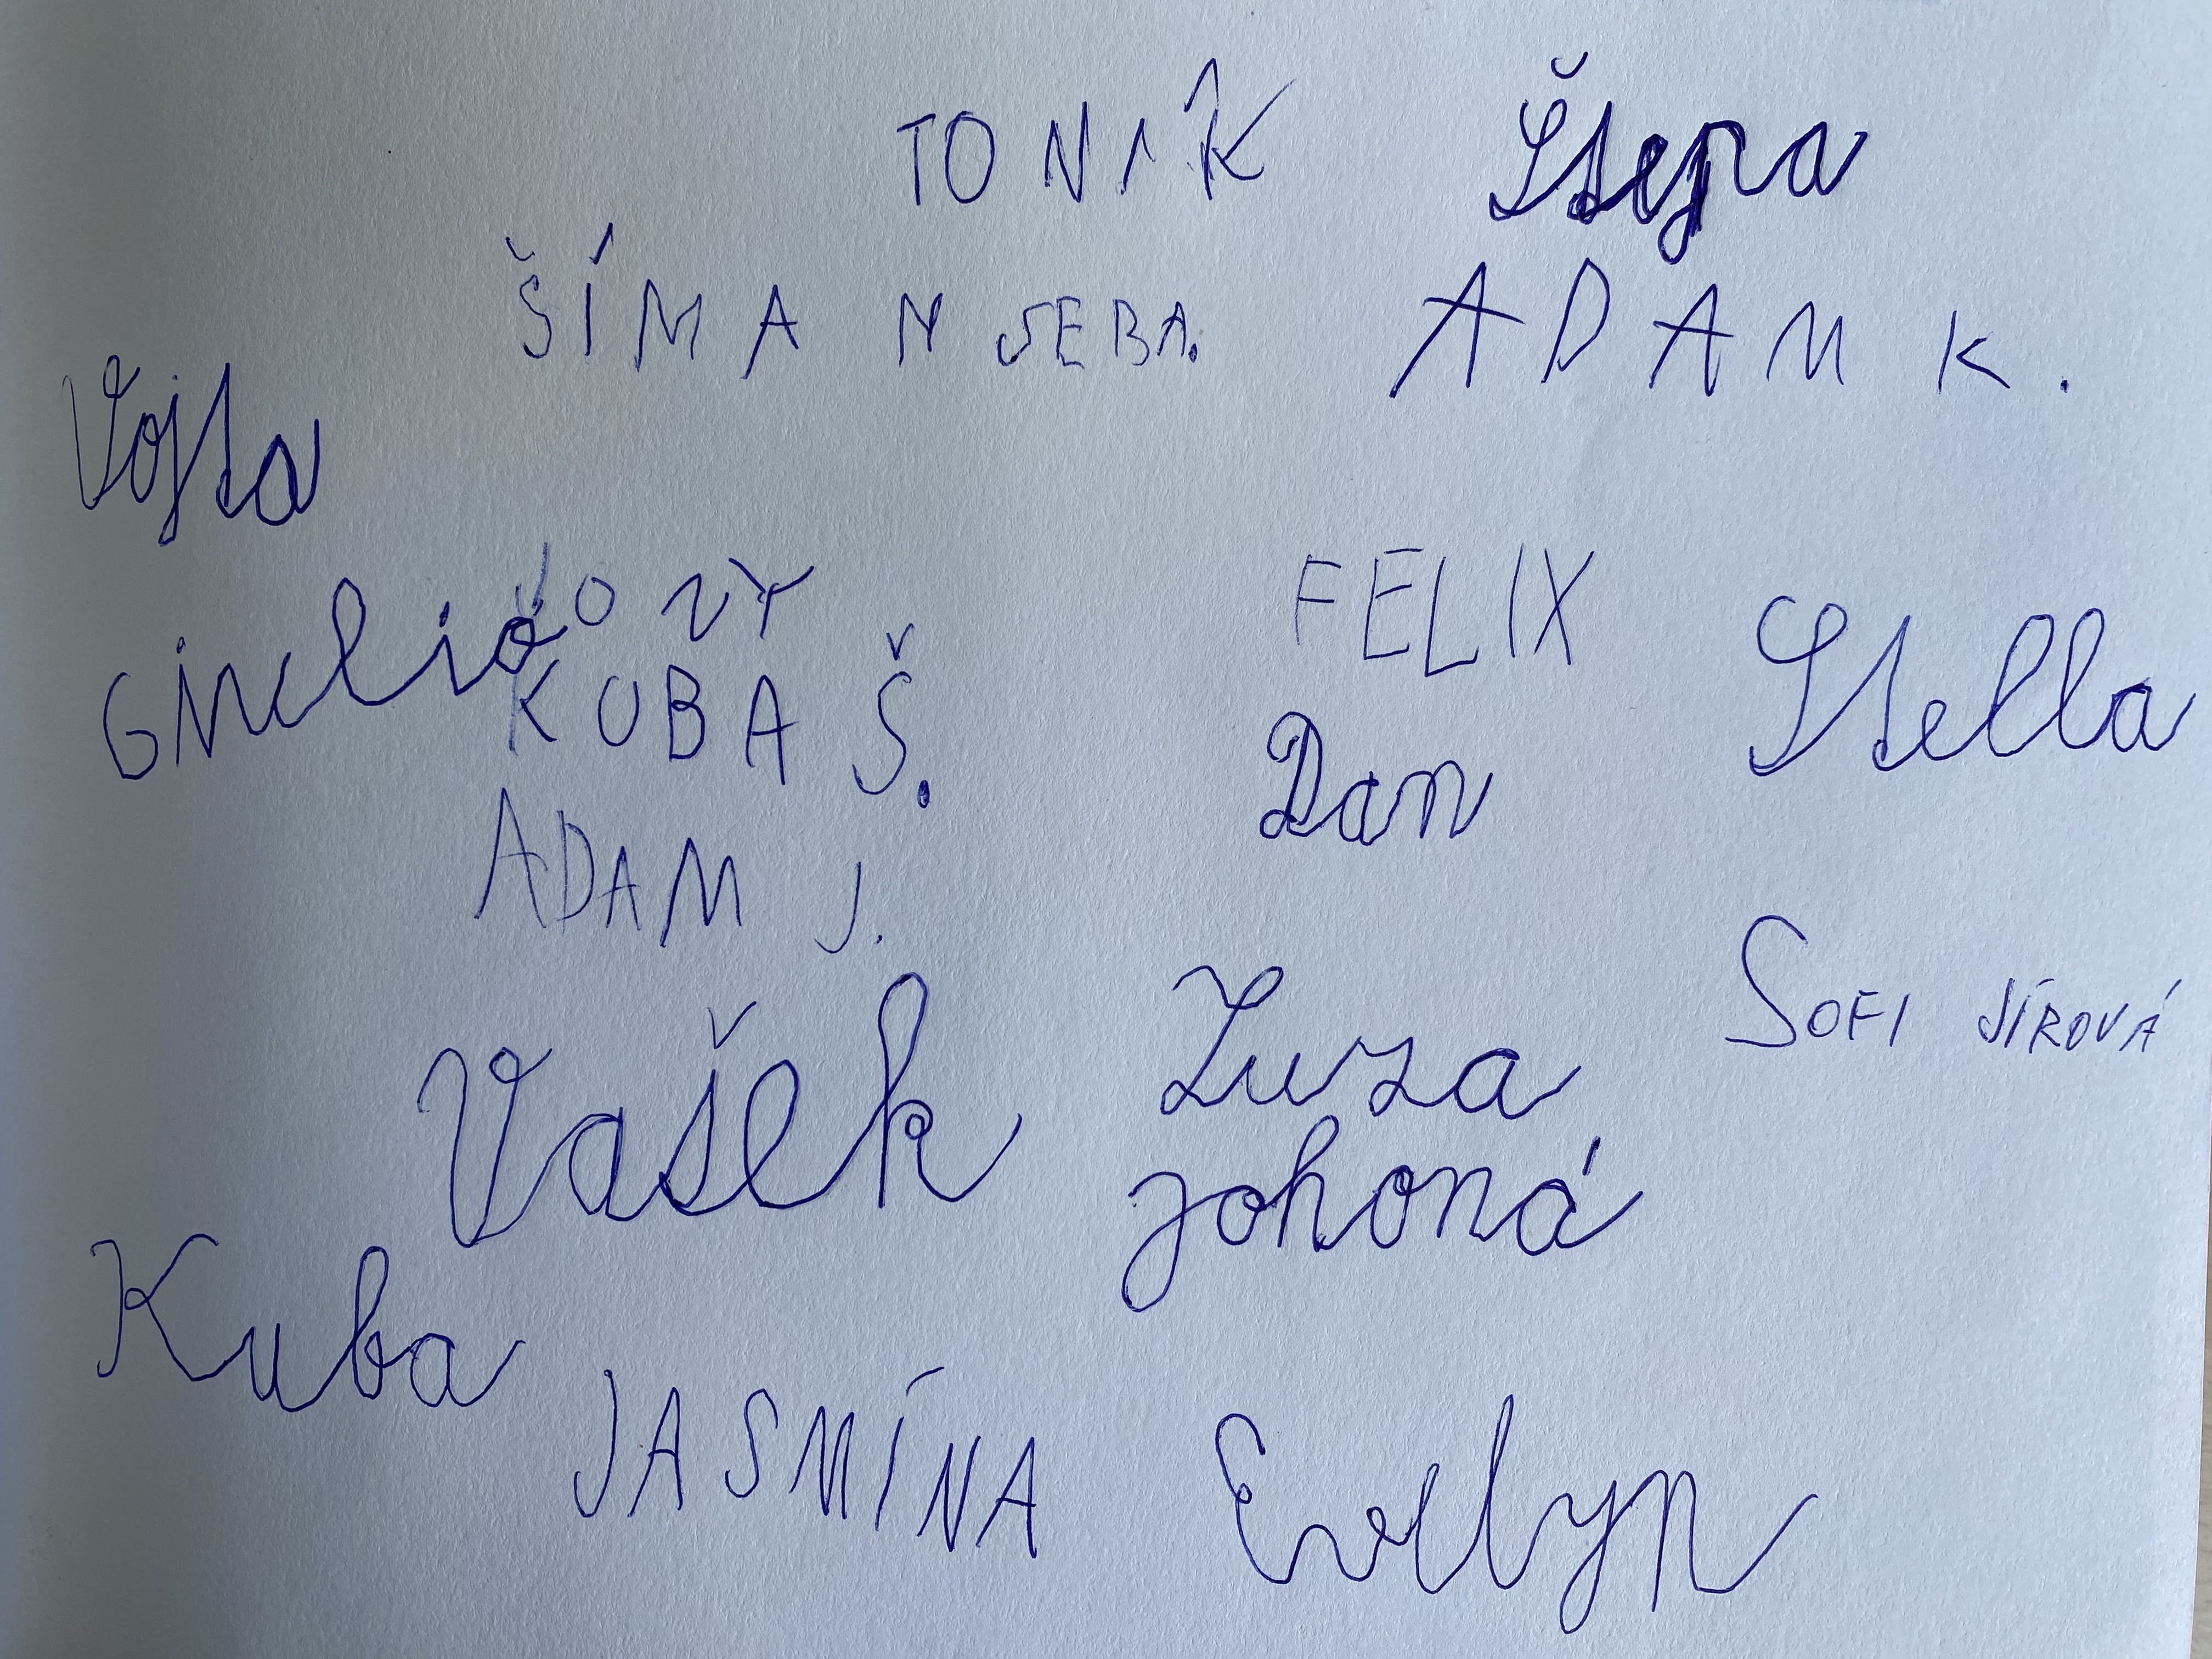 TONIK
Štepa
ŠÍMA N SEBA.
ADAM K.
Vojta
FELIX
Stella
KUBA Š.
Dan
ADAM J.
SOFI JÍROVÁ
Vašek
Zuza
johoná
Kuba
JASMÍNA
Evelyn